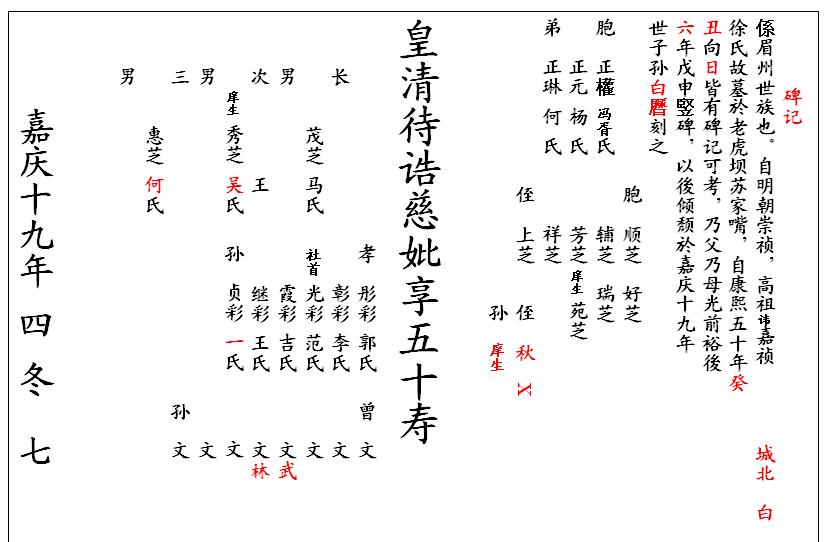 碑记
係眉州世族也。自明朝崇祯，高祖讳嘉祯 城北 白
徐氏故墓於老虎坝苏家嘴，自康熙五十年癸
丑向日皆有碑记可考，乃父乃母光前裕後
六年戊申竪碑，以後倾颓於嘉庆十九年
世子孙白曆刻之
胞 顺芝 好芝
胞 正權 冯胥氏 辅芝 瑞芝
正元 杨氏 芳芝 庠生 苑芝
弟 正琳 何氏 祥芝
侄 上芝 侄 秋 X
孙 庠生
皇清待诰慈妣享五十寿
孝 彤彩 郭氏 曾 文
长 彰彩 李氏 文
茂芝 马氏 社首 光彩 范氏 文
男 霞彩 吉氏 文武
次 王 继彩 王氏 文林
庠生 秀芝 吴氏 孙 贞彩 一氏 文
男 文
三 孙 文
惠芝 何氏
男
嘉庆十九年 四 冬 七